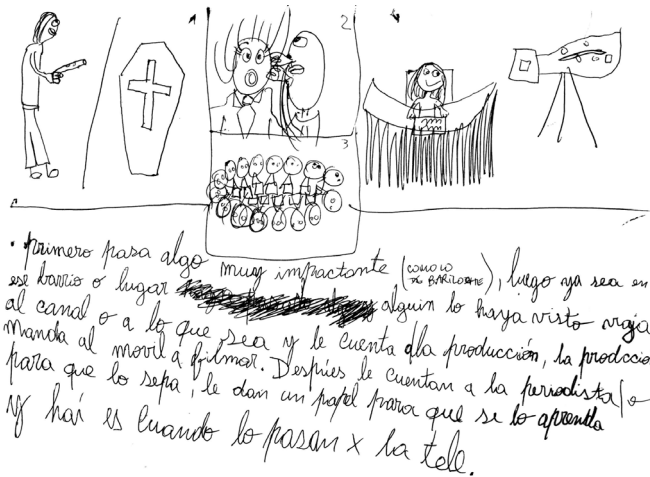 1
2
3
4
• primero pasa algo muy impactante (COMO LO DE BARILOCHE), luego ya sea en
ese barrio o lugar alguin lo haya visto viaja
al canal o a lo que sea y le cuenta a la producción, la prodccio
manda al movil a filmar. Despúes le cuentan a la periodista/o
para que lo sepa, le dan un papel para que se lo aprenda
y haí es cuando lo pasan x la tele.